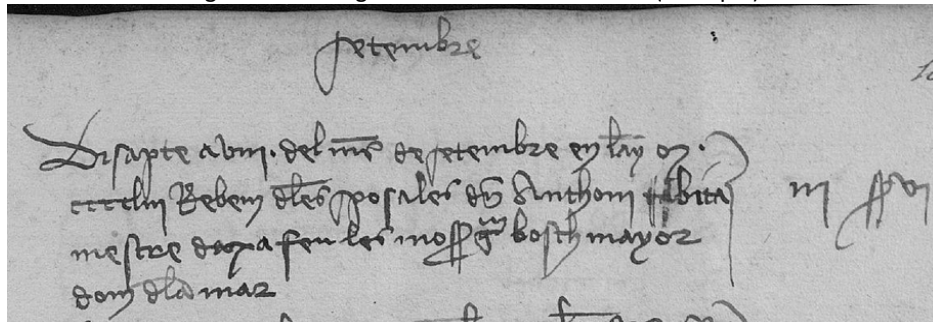 setembre
Disapte a viii. del mes de setembre en lay m.
ccccliii Rebem dles sposales den Anthoni
mestre daxa feu les mossen bosch mayor
dom dla mar
iii ss vi